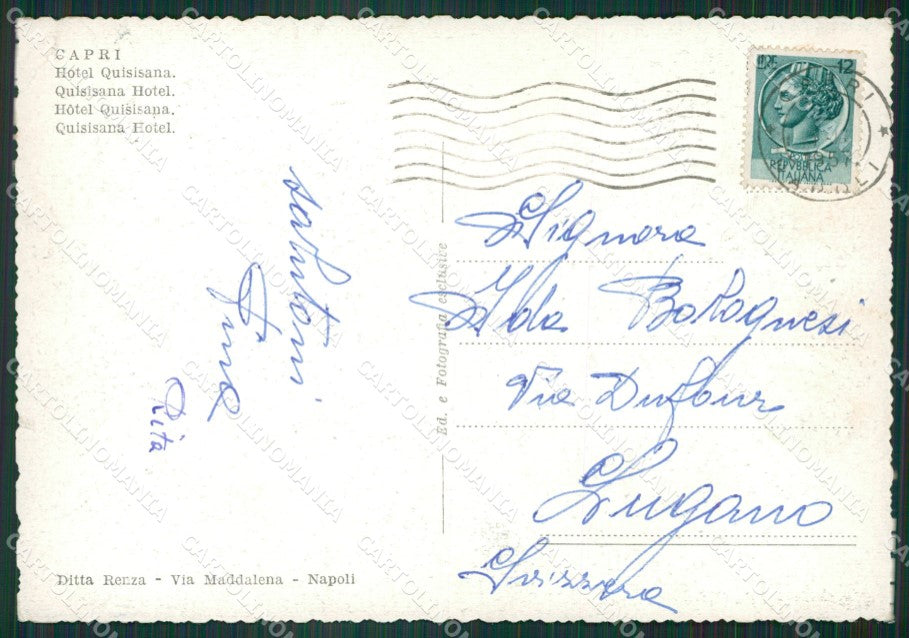 CAPRI
Hótel Quisisana.
Quisisana Hotel.
Hôtel Quisisana.
Quisisana Hotel.
12
REPVBBLICA
ITALIANA
CAPRI
NAPOLI
salutoni
Tina
Rita
Ed. e Fotografia esclusive
Signora
Ada Bolognesi
Via Dufour
Lugano
Svizzera
Ditta Renza - Via Maddalena - Napoli
CARTOLINOMANIA